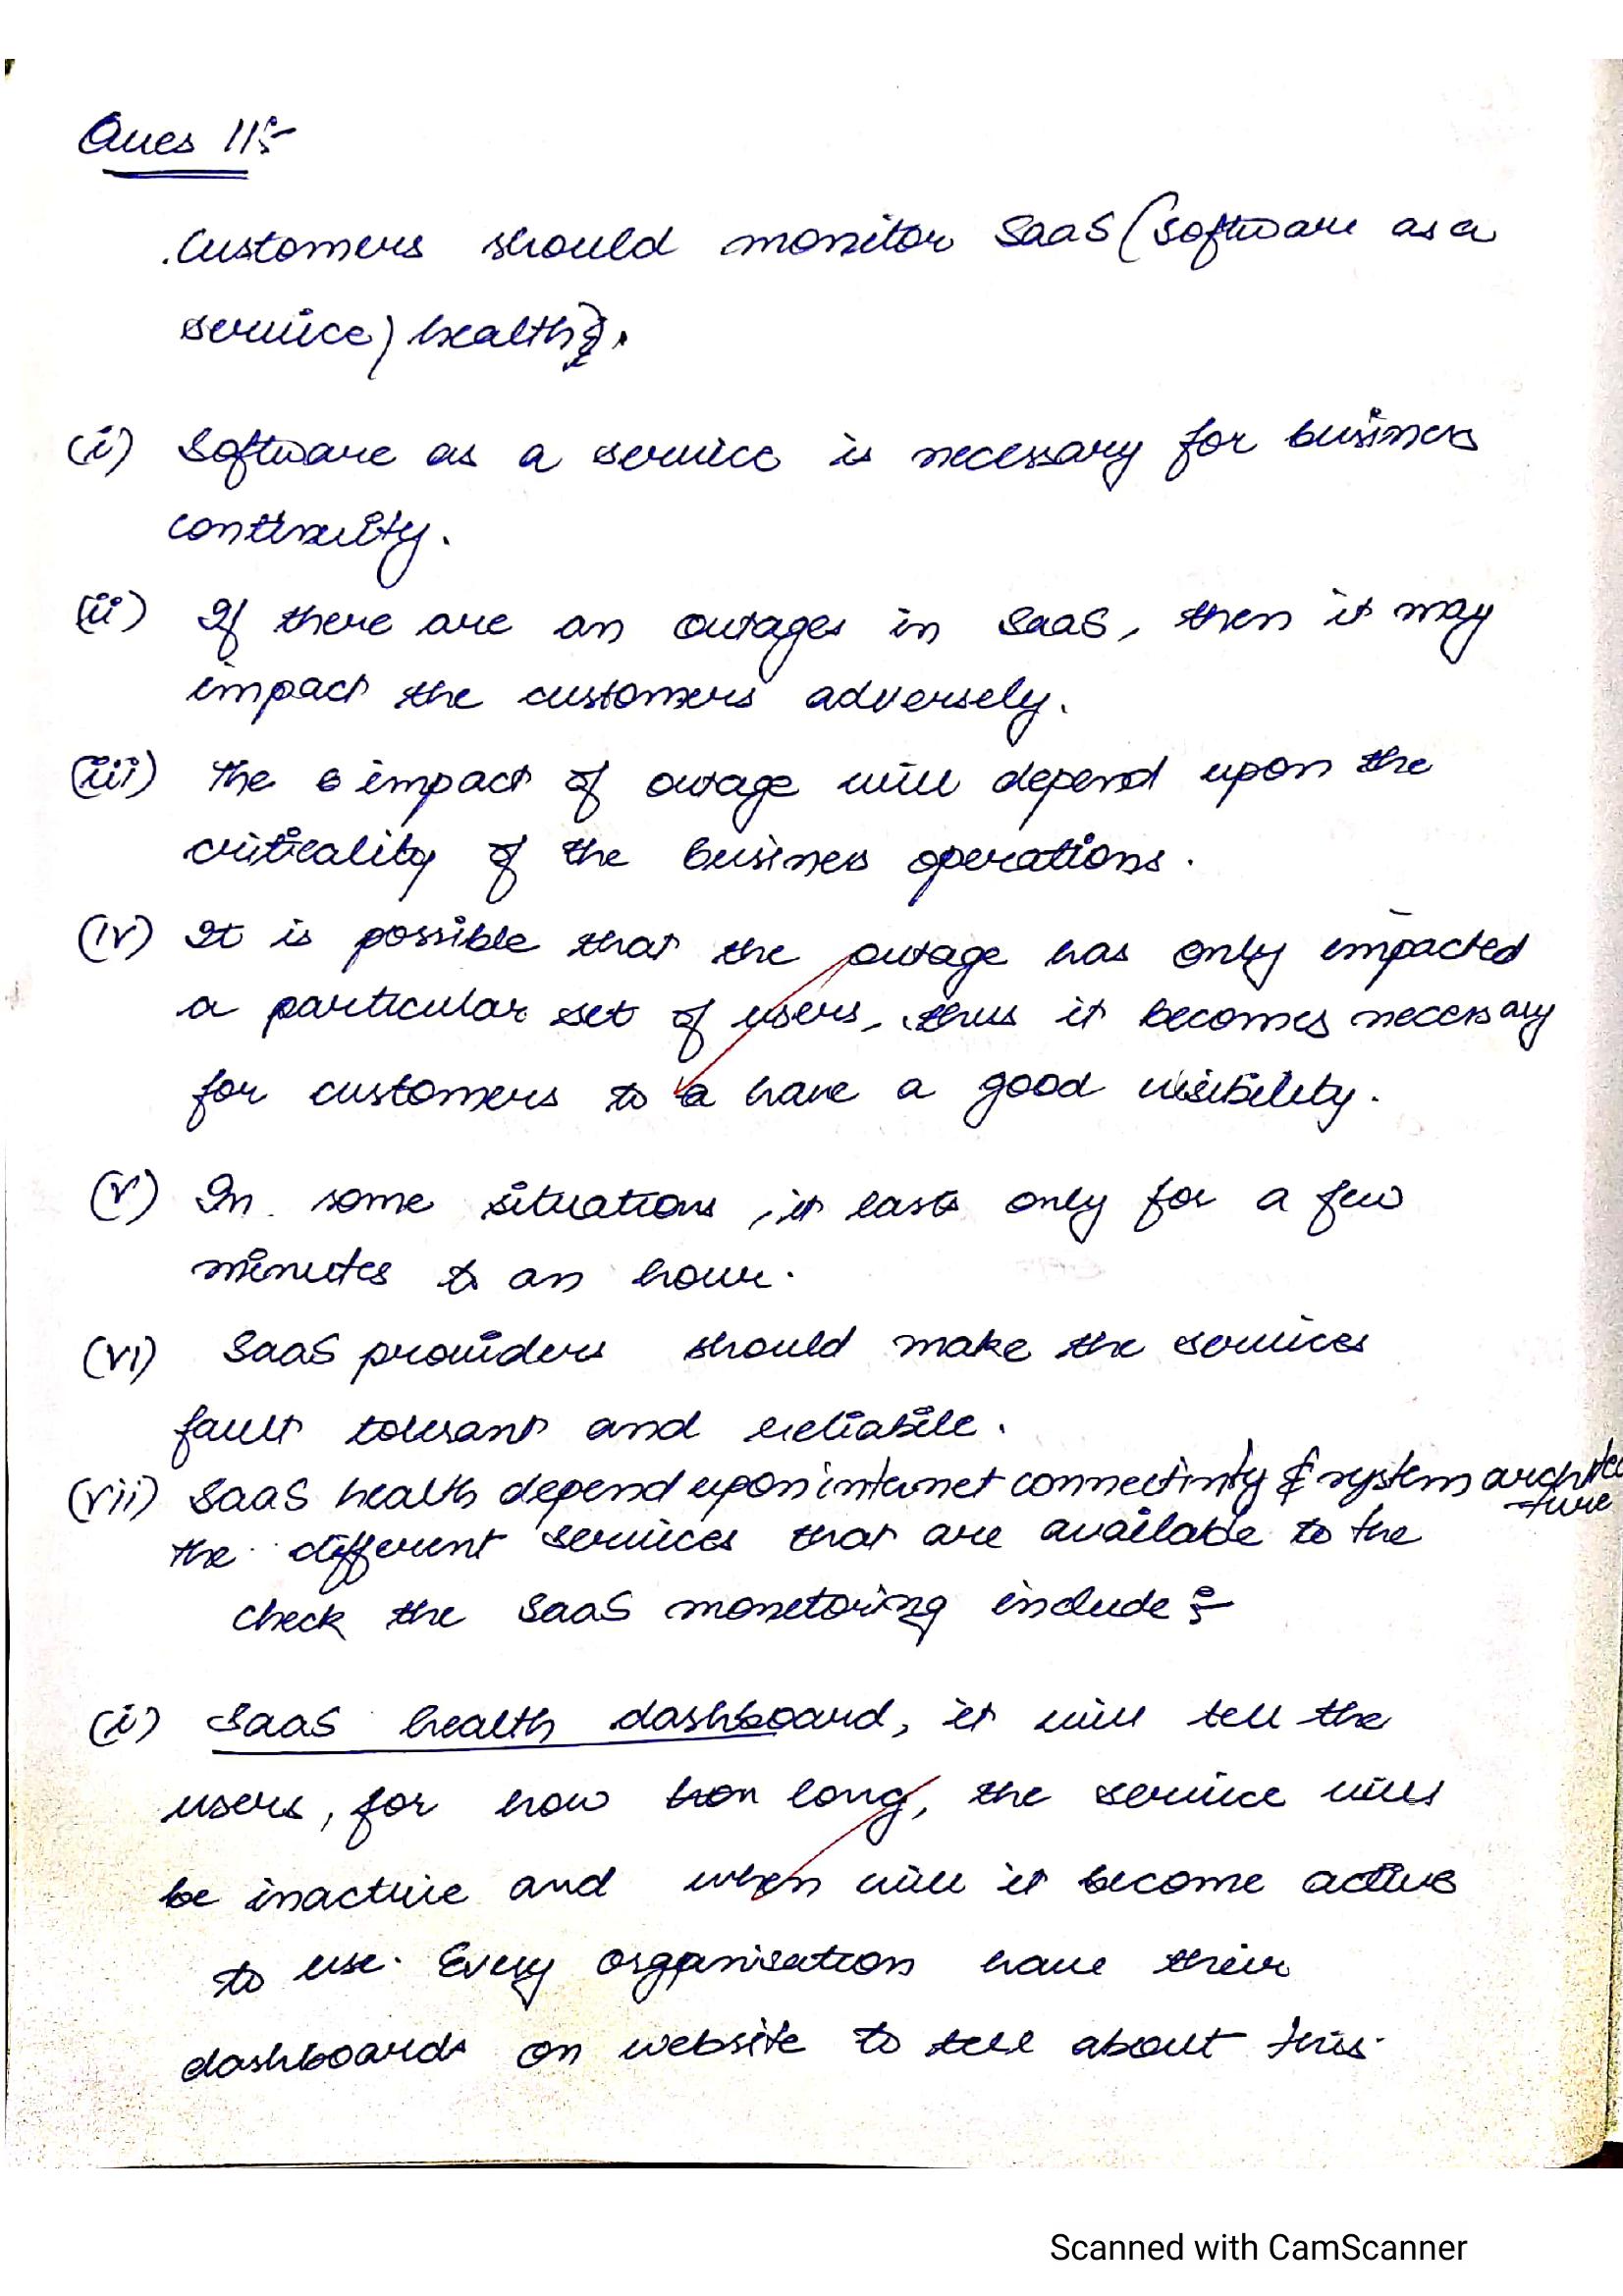 Ques 11:-
Customers should monitor SaaS (Software as a
service) health.
(i) Software as a service is necessary for business
continuity.
(ii) If there are an outages in SaaS, then it may
impact the customers adversely.
(iii) The impact of outage will depend upon the
criticality of the business operations.
(iv) It is possible that the outage has only impacted
a particular set of users, thus it becomes necessary
for customers to a have a good visibility.
(v) In some situations, it lasts only for a few
minutes to an hour.
(vi) SaaS providers should make the services
fault tolerant and reliabile.
(vii) SaaS health depend upon internet connectivity & system architec
-ture
the different services that are available to the
check the SaaS monetoring include :-
(i) SaaS health dashboard, it will tell the
users, for how hon long, the service will
be inactive and when will it become active
to use. Every organisation have their
dashboards on website to tell about this.
Scanned with CamScanner